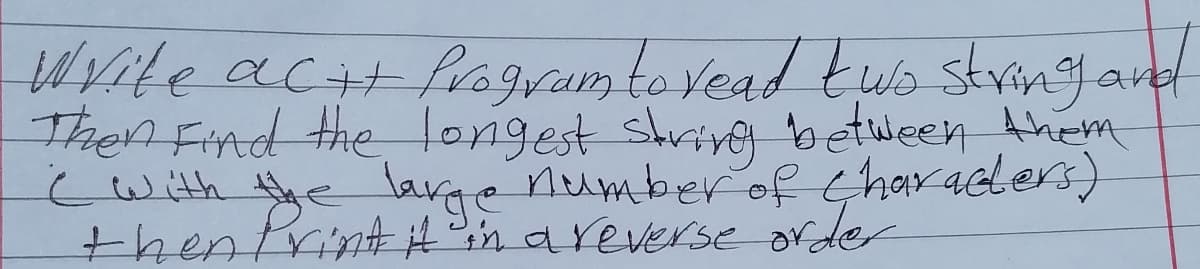 Write a c++ Program to read two string and
Then Find the longest string between them
( with the large number of characters)
then Print it in a reverse order